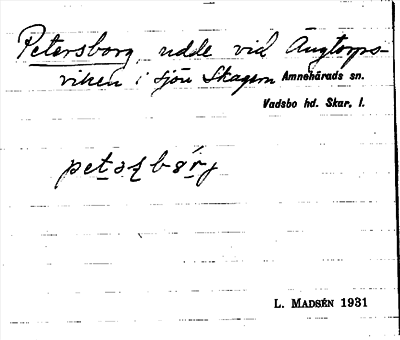 Petersborg, udde vid Ängtorps-
viken i sjön Skagern Amnehärads sn.
Vadsbo hd. Skar. l.
L. MADSÉN 1931